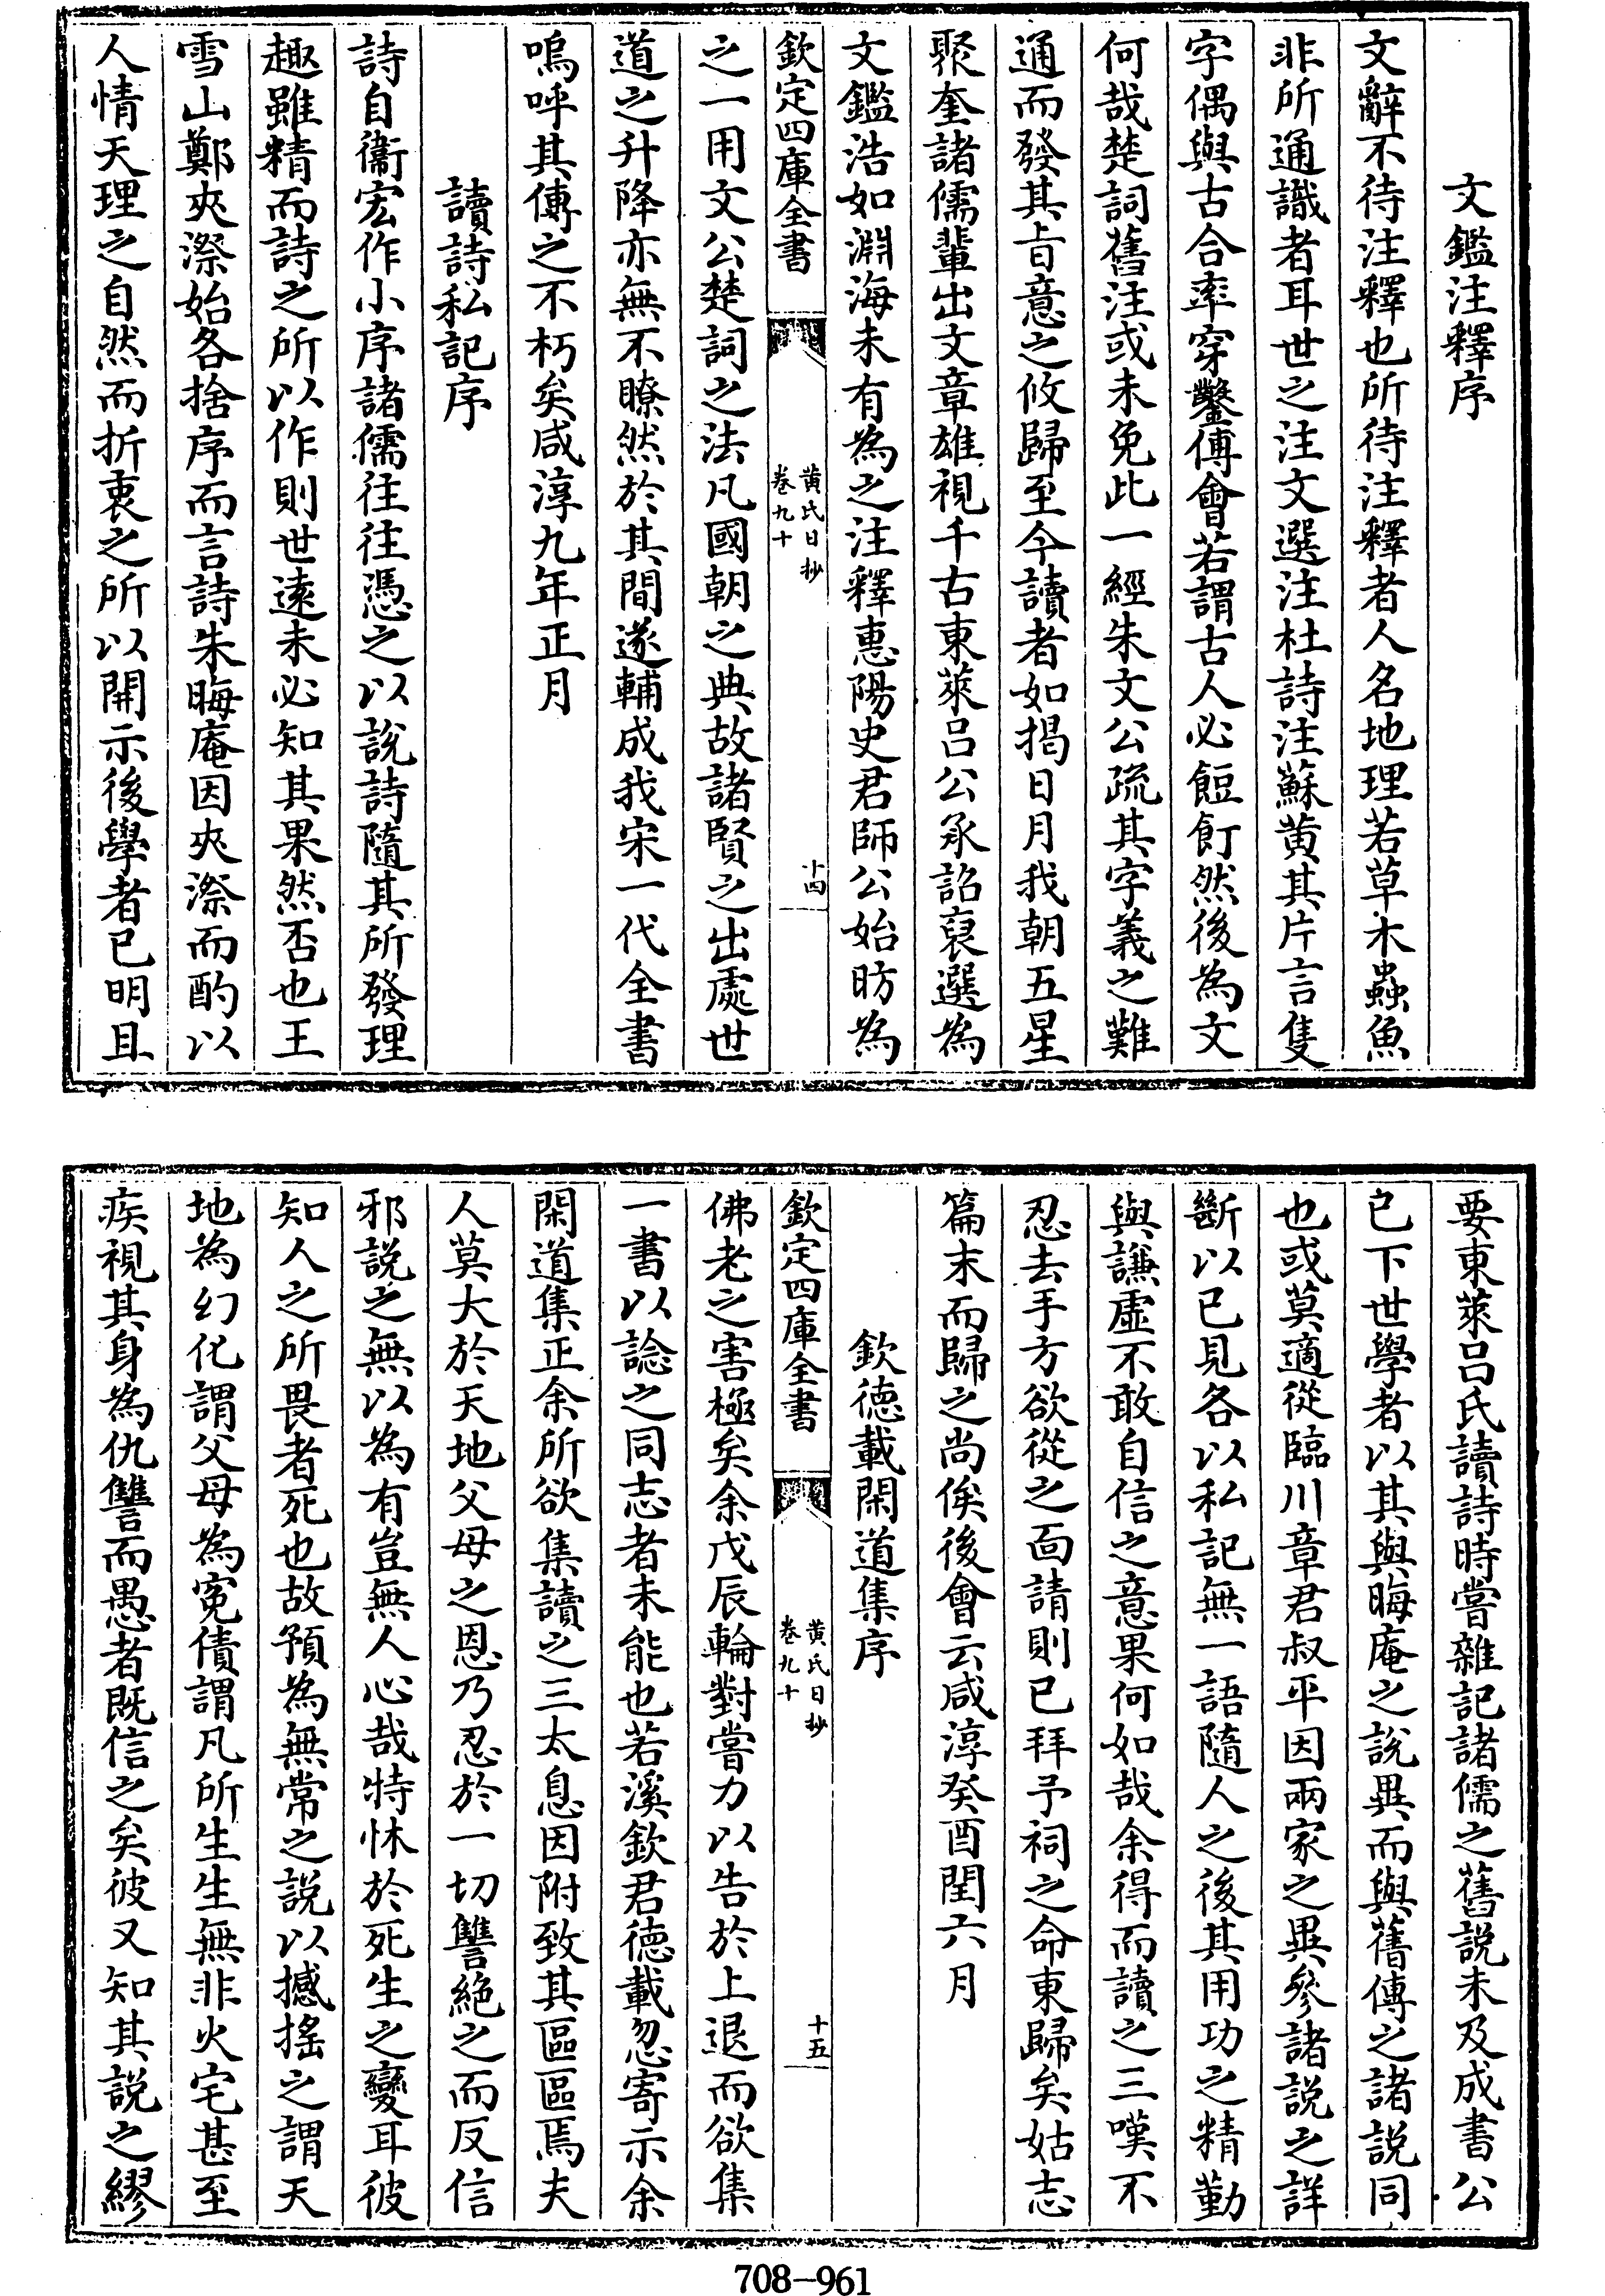 文鑑注釋序
文辭不待注釋也所待注釋者人名地理若草木蟲魚
非所通識者耳世之注文選注杜詩注蘇黄其片言隻
字偶與古合率穿鑿傅會若謂古人必餖飣然後為文
何哉楚詞舊注或未免此一經朱文公疏其字義之難
通而發其㫖意之攸歸至今讀者如揭日月我朝五星
聚奎諸儒輩出文章雄視千古東萊吕公承詔裒選為
文鑑浩如淵海未有為之注釋惠陽史君師公始昉為
欽定四庫全書
黄氏日抄
卷九十
十四
之一用文公楚詞之法凡國朝之典故諸賢之出處世
道之升降亦無不瞭然於其間遂輔成我宋一代全書
嗚呼其傳之不朽矣咸淳九年正月
讀詩私記序
詩自衞宏作小序諸儒往往憑之以說詩隨其所發理
趣雖精而詩之所以作則世逺未必知其果然否也王
雪山鄭夾漈始各捨序而言詩朱晦庵因夾漈而酌以
人情天理之自然而折衷之所以開示後學者已明且
要東萊吕氏讀詩時嘗雜記諸儒之舊說未及成書公
已下世學者以其與晦庵之說異而與舊傳之諸說同
也或莫適從臨川章君叔平因兩家之異參諸說之詳
斷以已見各以私記無一語隨人之後其用功之精勤
與謙虛不敢自信之意果何如哉余得而讀之三嘆不
忍去手方欲從之面請則已拜予祠之命東歸矣姑志
篇末而歸之尚俟後會云咸淳癸酉閏六月
欽德載閑道集序
欽定四庫全書
黄氏日抄
卷九十
十五
佛老之害極矣余戊辰輪對嘗力以告於上退而欲集
一書以諗之同志者未能也若溪欽君德載忽寄示余
閑道集正余所欲集讀之三太息因附致其區區焉夫
人莫大於天地父母之恩乃忍於一切讐絶之而反信
邪說之無以為有豈無人心哉特怵於死生之變耳彼
知人之所畏者死也故預為無常之說以撼搖之謂天
地為幻化謂父母為寃債謂凡所生生無非火宅甚至
疾視其身為仇讐而愚者既信之矣彼又知其說之繆
708-961